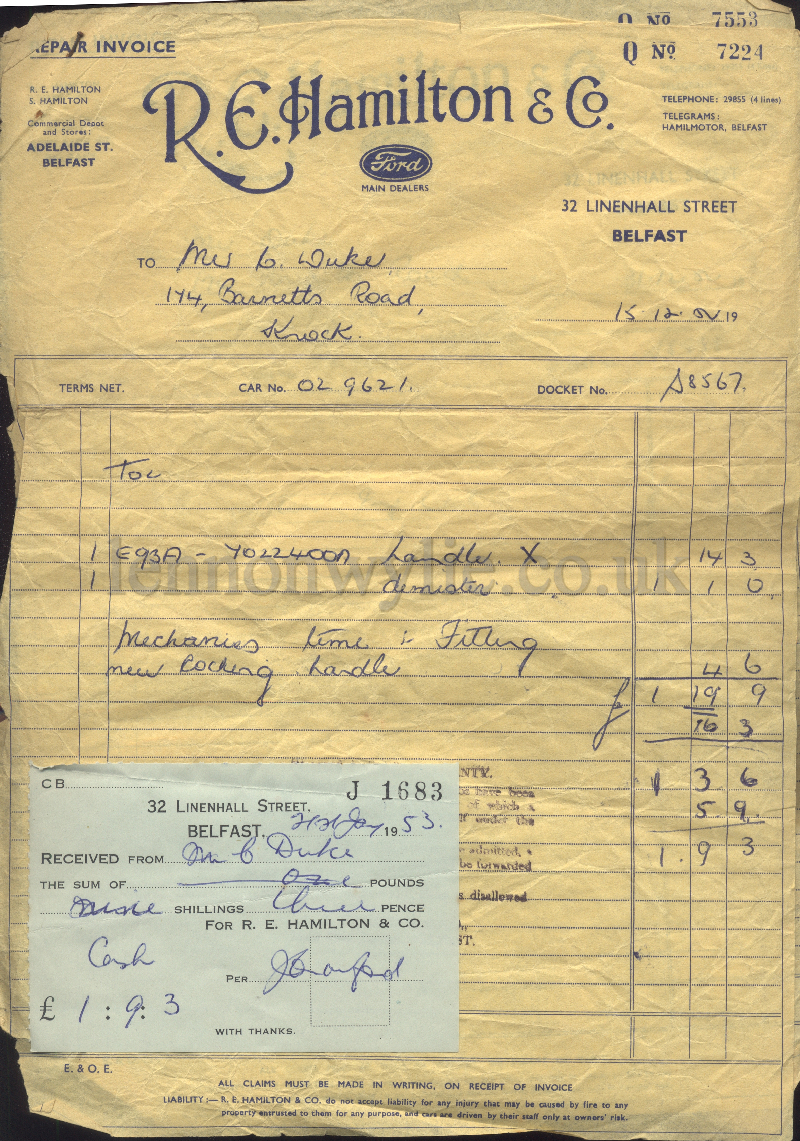 REPAIR INVOICE
Q No 7553
Q No 7224
R. E. HAMILTON
S. HAMILTON
Commercial Depot
and Stores:
ADELAIDE ST.
BELFAST
R.E. Hamilton & Co.
Ford
MAIN DEALERS
TELEPHONE: 29855 (4 lines)
TELEGRAMS:
HAMILMOTOR, BELFAST
32 LINENHALL STREET
BELFAST
TO Mr C. Duke,
174, Barnetts Road,
Knock.
15.12. 19
TERMS NET. CAR No. OZ 9621. DOCKET No. S8567.
To:
1 E93A - 7022400A handle. X 14 3
1 demister. 1 1 0
Mechanics time :- Fitting
new locking handle 4 6
£ 1 19 9
16 3
1 3 6
5 9.
1. 9 3
NTY.
have been
of which a
under the
admitted, a
be forwarded
s disallowed
ST.
CB J 1683
32 LINENHALL STREET,
BELFAST, Jany 1953.
RECEIVED FROM Mr C Duke
THE SUM OF One POUNDS
nine SHILLINGS three PENCE
FOR R. E. HAMILTON & CO.
Cash
PER J Crawford
£ 1 : 9 : 3
WITH THANKS.
E. & O. E.
ALL CLAIMS MUST BE MADE IN WRITING, ON RECEIPT OF INVOICE
LIABILITY :— R. E. HAMILTON & CO. do not accept liability for any injury that may be caused by fire to any
property entrusted to them for any purpose, and cars are driven by their staff only at owners' risk.
lennonwylie.co.uk